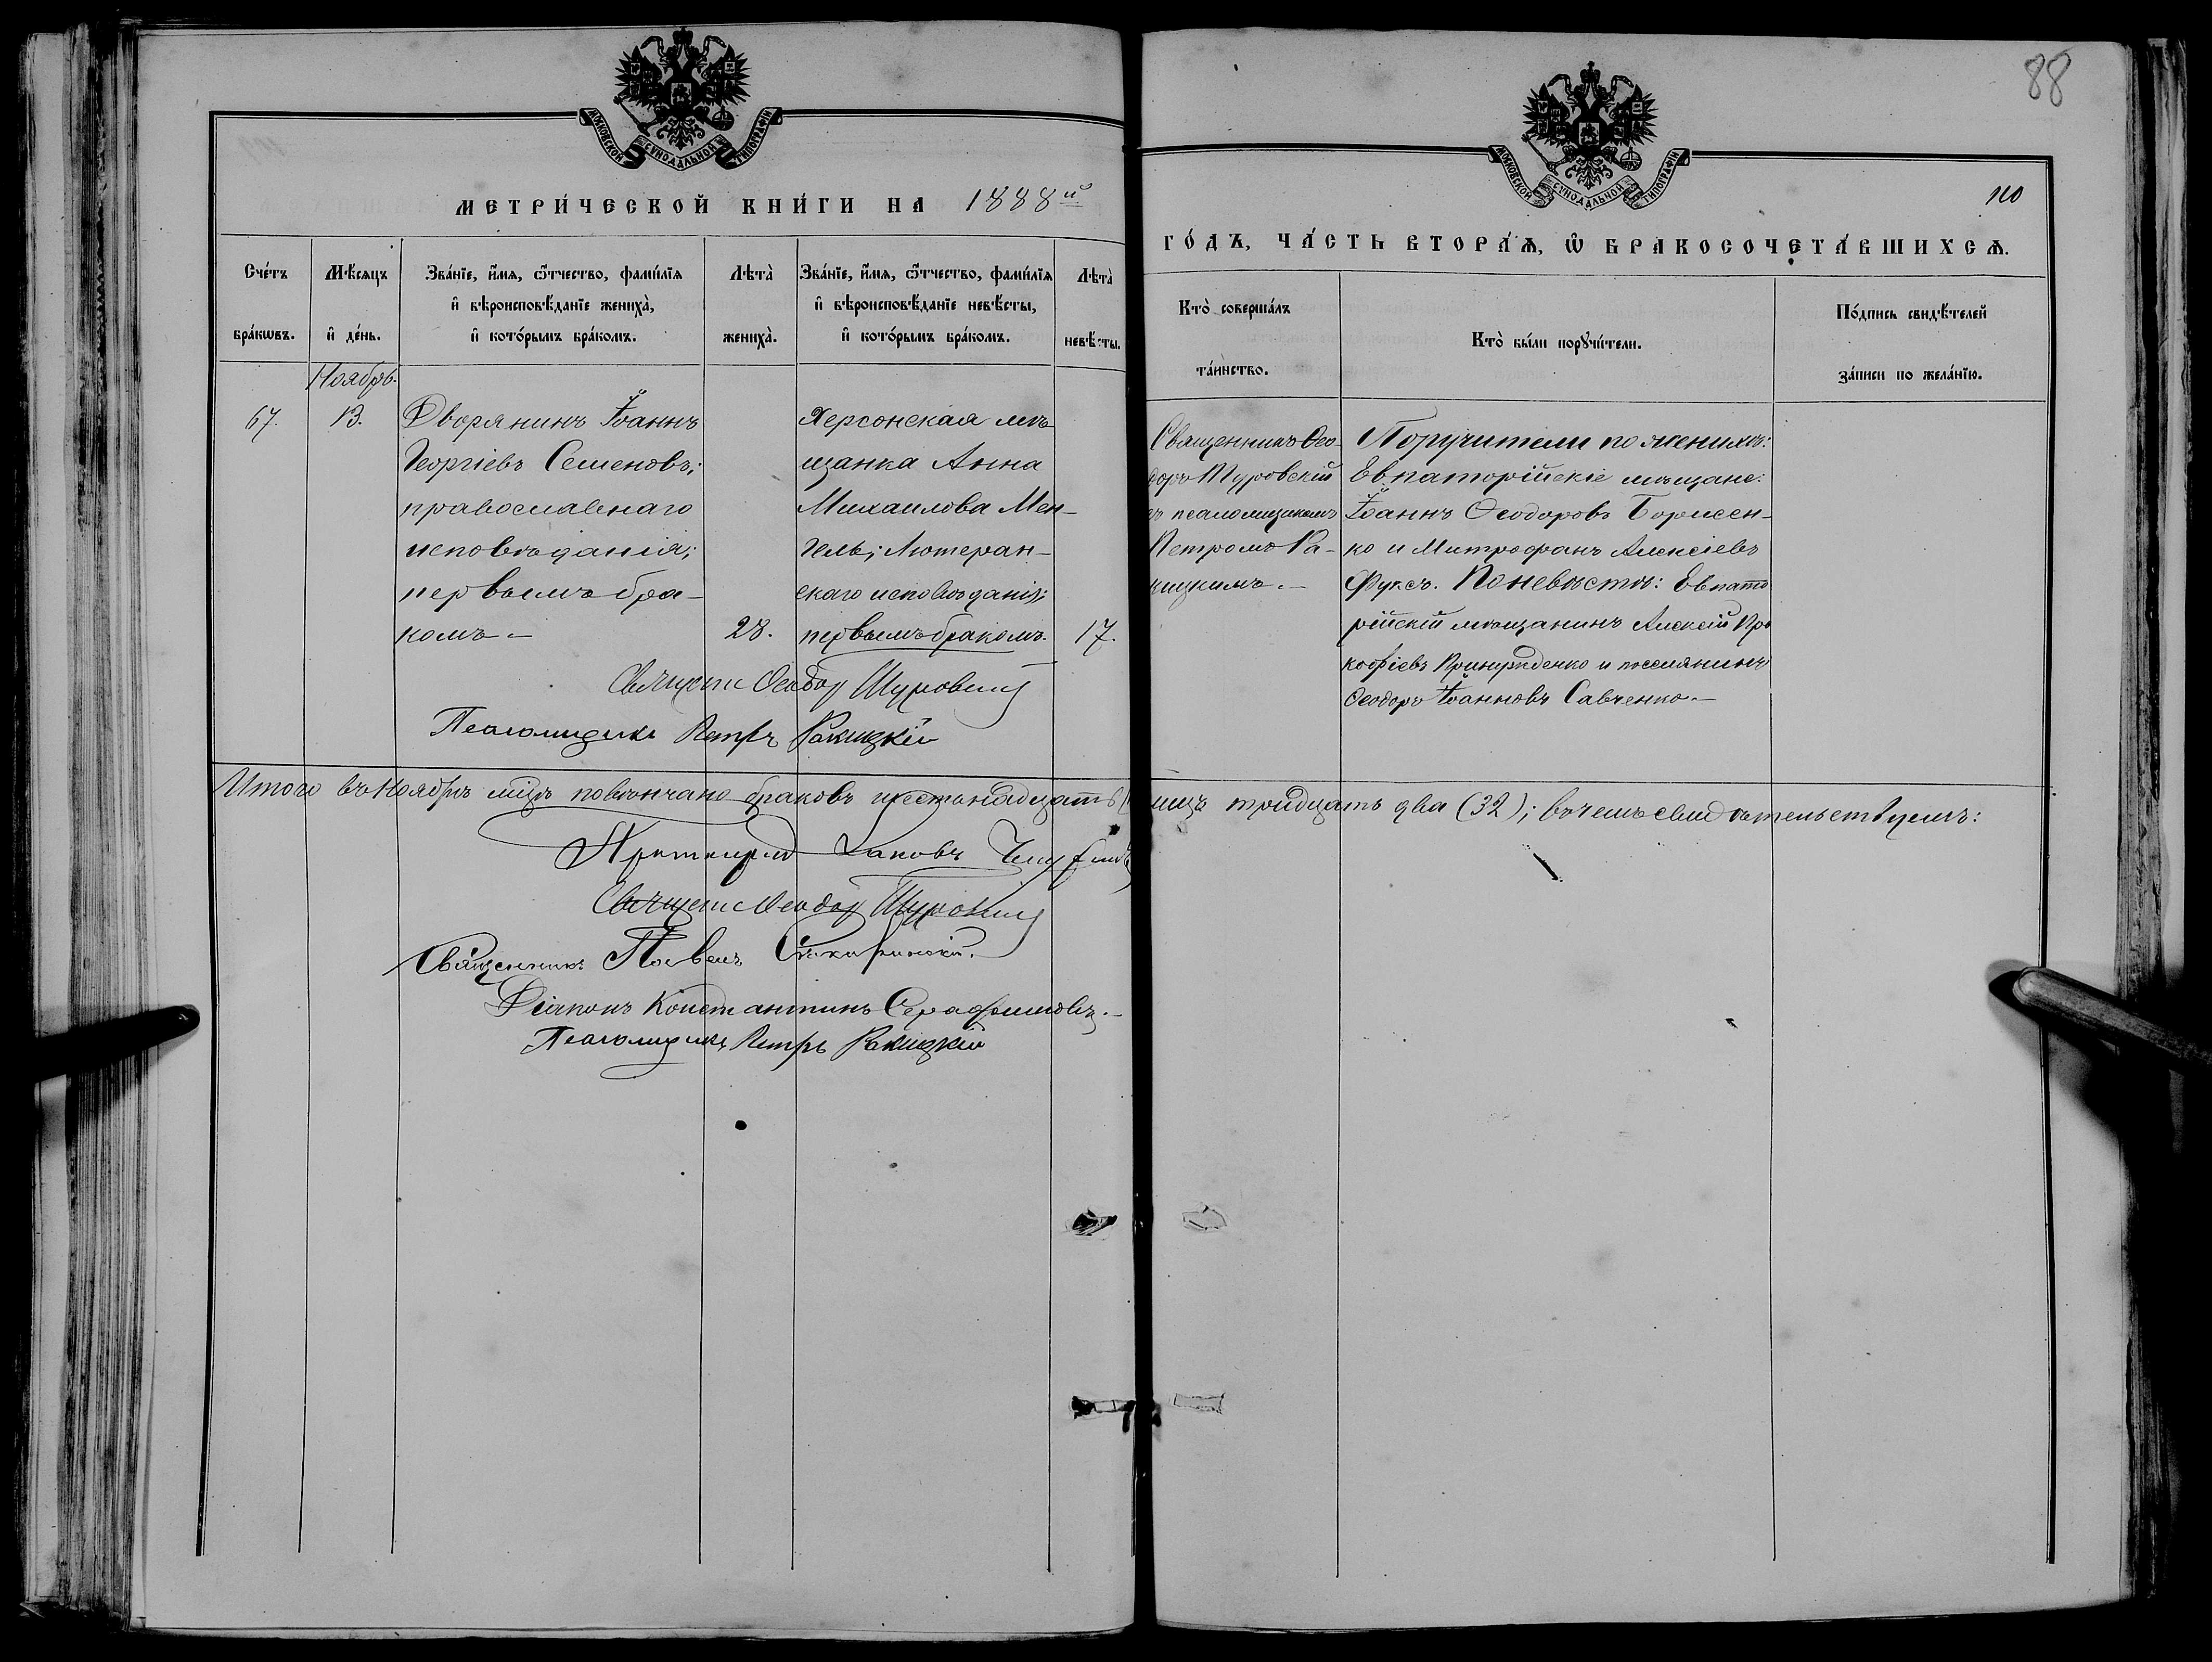 88
110
МОСКОВСКОЙ СѴНОДАЛЬНОЙ ТИПОГРАФІИ
МОСКОВСКОЙ СѴНОДАЛЬНОЙ ТИПОГРАФІИ
МЕТРИ́ЧЕСКОЙ КНИ́ГИ НА 1888й
ГО́ДЪ, ЧА́СТЬ ВТОРА́Ѧ, Ѽ БРАКОСОЧЕТА́ВШИХСѦ.
Сче́тъ бра́кѡвъ.
Мѣ́сяцъ и҆ де́нь.
Зва́нїе, и҆́мя, ѻ҆́тчество, фами́лїя
и҆ вѣроисповѣ́данїе жениха̀,
и҆ кото́рымъ бра́комъ.
Лѣта̀ жениха̀.
Зва́нїе, и҆́мя, ѻ҆́тчество, фами́лїя
и҆ вѣроисповѣ́данїе невѣ́сты,
и҆ кото́рымъ бра́комъ.
Лѣта̀ невѣ́сты.
Кто̀ соверша́лъ
та́инство.
Кто̀ бы́ли порꙋчи́тели.
По́дпись свидѣ́телей
за́писи по жела́нїю.
Ноябрь.
67.
13.
Дворянинъ Іоаннъ
Георгіевъ Семеновъ;
православнаго
исповѣданія;
первымъ бра-
комъ.-
28.
Херсонская мѣ
щанка Анна
Михаилова Мен-
гель; Лютеран-
скаго исповѣданія;
первымъ бракомъ.
17.
Священникъ Ѳео-
доръ Туровскій
съ псаломщикомъ
Петромъ Ра-
кицкимъ.-
Поручители по женихѣ:
Евпаторійскіе мѣщане:
Іоаннъ Ѳеодоровъ Борисен-
ко и Митрофанъ Алексіевъ
Фуксъ. По невѣстѣ: Евпато
рійскій мѣщанинъ Алексій Про
кофіевъ и поселянинъ
Ѳеодоръ Іоанновъ Савченко.-
Священ. Ѳеодор Туровскій
Псаломщикъ Петръ Ракицкій
Итого въ Ноябрѣ мцѣ повѣнчано браковъ шестьнадцать
лицъ тридцать два (32); въ чемъ свидѣтельствуемъ:
Протоіерей Іаковъ
Священ. Ѳеодор Туровскій
Священникъ Павелъ
Діаконъ Константинъ Серафимовъ.-
Псаломщикъ Петръ Ракицкій